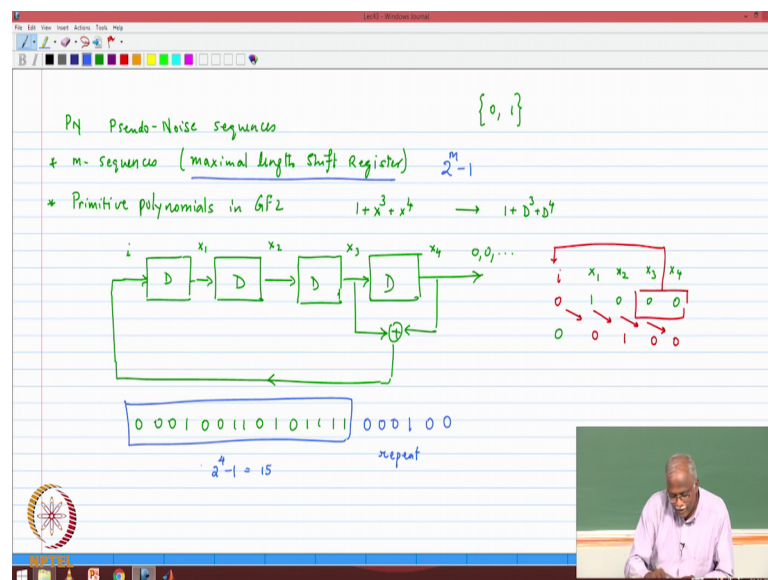 Lec43 - Windows Journal
File Edit View Insert Actions Tools Help
B I
{0, 1}
PN Pseudo-Noise sequences
* m- sequences (maximal length Shift Register) 2^m-1
* Primitive polynomials in GF2 1+x^3+x^4 → 1+D^3+D^4
i x1 x2 x3 x4 0,0,...
D D D D
+
i x1 x2 x3 x4
0 1 0 0 0
0 0 1 0 0
0 0 0 1 0 0 1 1 0 1 0 1 1 1 1 0 0 0 1 0 0
2^4-1 = 15 repeat
NPTEL